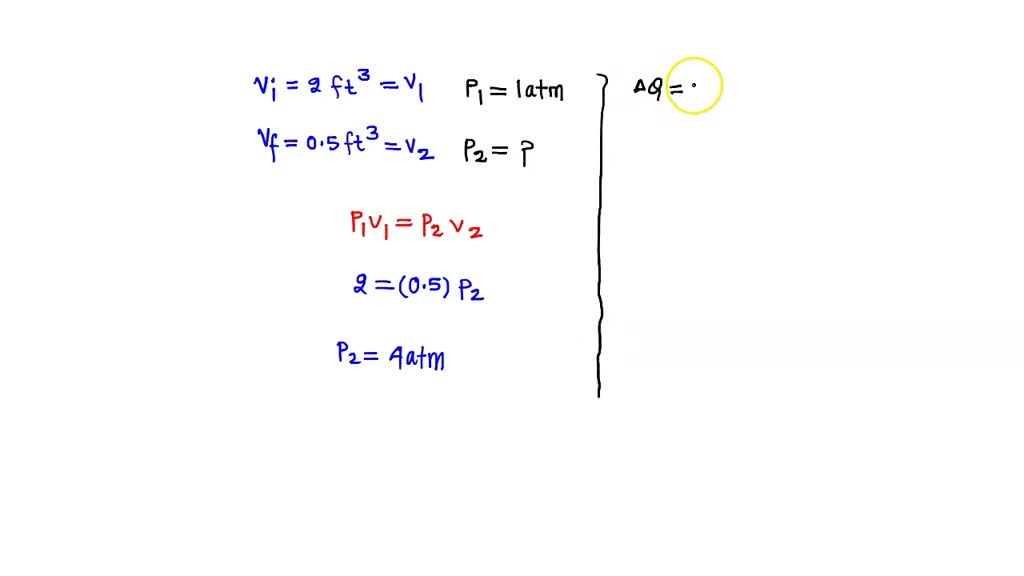 Vi = 2 ft³ = V₁ P₁ = 1atm
Vf = 0.5 ft³ = V₂ P₂ = ?
P₁V₁ = P₂V₂
2 = (0.5) P₂
P₂ = 4atm
ΔQ =